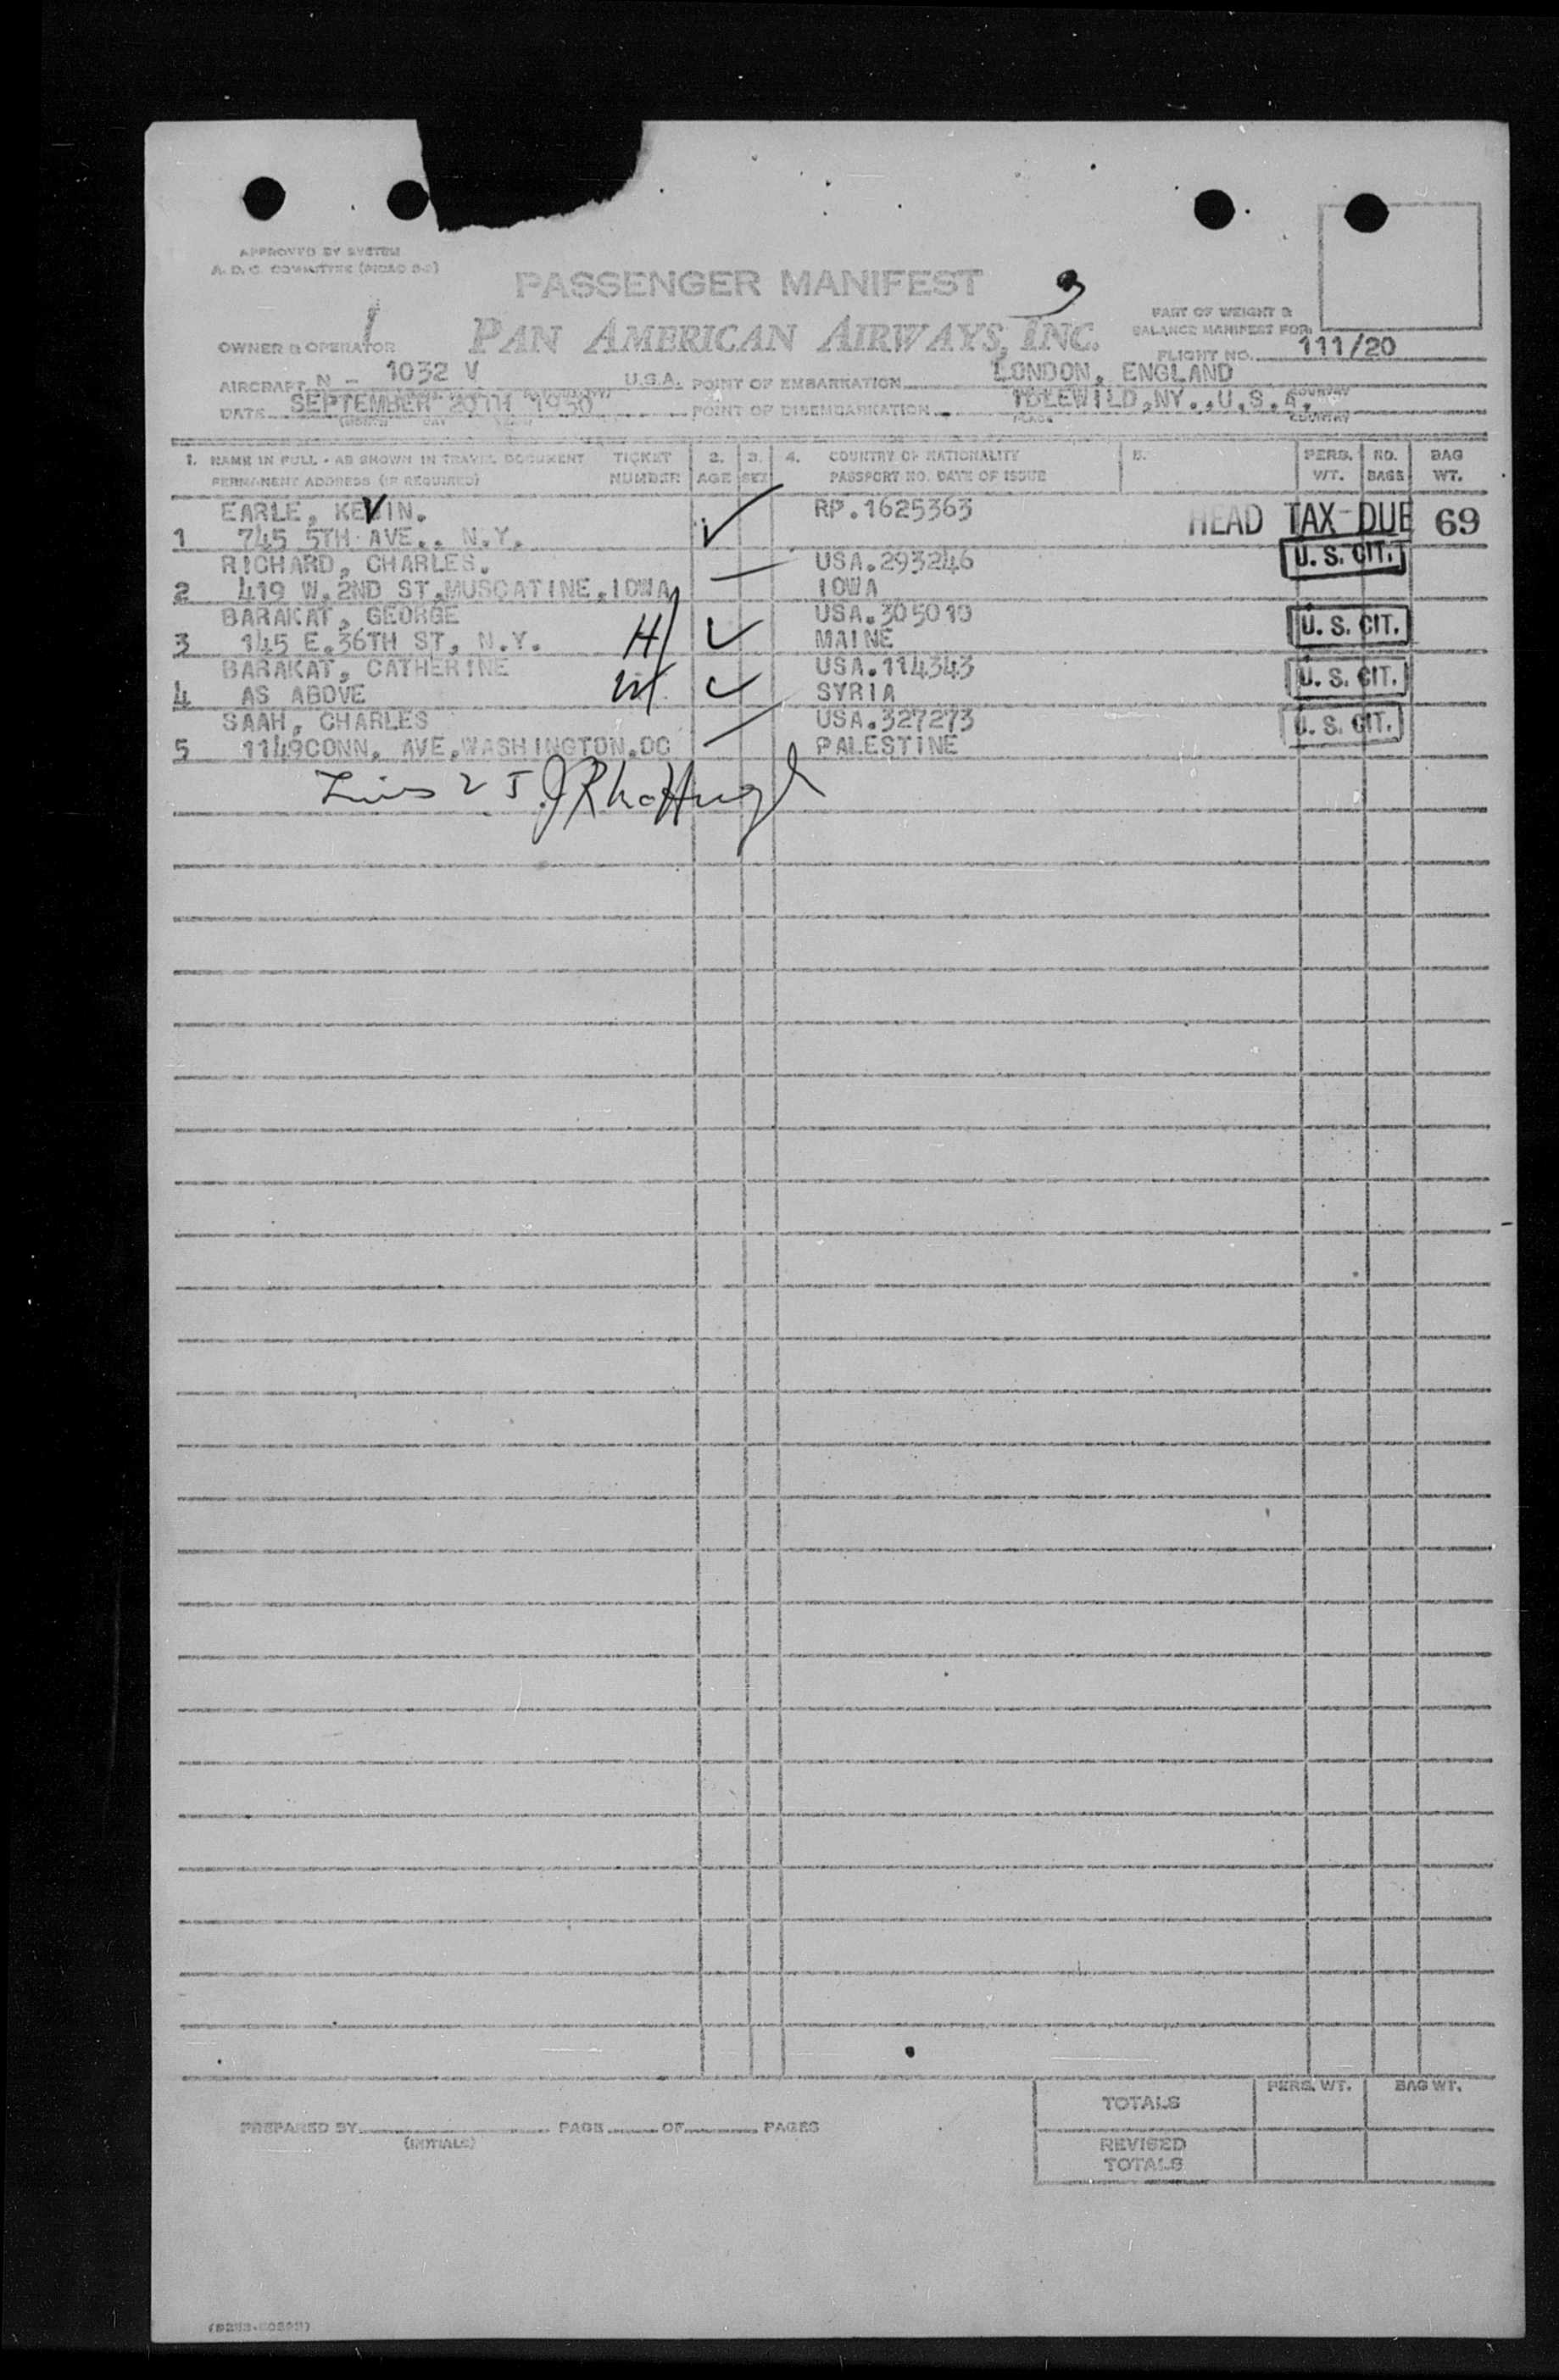 APPROVED BY SYSTEM
A. D. C. COMMITTEE
PASSENGER MANIFEST
3
1
PAN AMERICAN AIRWAYS, INC.
PART OF WEIGHT &
BALANCE MANIFEST FOR
OWNER & OPERATOR
FLIGHT NO. 111/20
AIRCRAFT N - 1032 V U.S.A. POINT OF EMBARKATION LONDON, ENGLAND
DATE SEPTEMBER 20TH 1950 POINT OF DISEMBARKATION IDLEWILD,NY.,U.S.A.
(MONTH DAY YEAR) PLACE COUNTRY
1. NAME IN FULL - AS SHOWN IN TRAVEL DOCUMENT TICKET 2. 3. 4. COUNTRY OF NATIONALITY 5. PERS. NO. BAG
PERMANENT ADDRESS (IF REQUIRED) NUMBER AGE SEX PASSPORT NO. DATE OF ISSUE WT. BAGS WT.
EARLE, KEVIN. RP.1625363 HEAD TAX DUE 69
1 745 5TH AVE.. N.Y.
RICHARD, CHARLES. USA.293246 U. S. CIT.
2 419 W.2ND ST.MUSCATINE.IOWA IOWA
BARAKAT, GEORGE USA.305019 U. S. CIT.
3 145 E.36TH ST, N.Y. H MAINE
BARAKAT, CATHERINE USA.114343 U. S. CIT.
4 AS ABOVE W SYRIA
SAAH, CHARLES USA.327273 U. S. CIT.
5 1149CONN. AVE.WASHINGTON.DC PALESTINE
2 5
PERS. WT. BAG WT.
TOTALS
PREPARED BY PAGE OF PAGES
(INITIALS)
REVISED
TOTALS